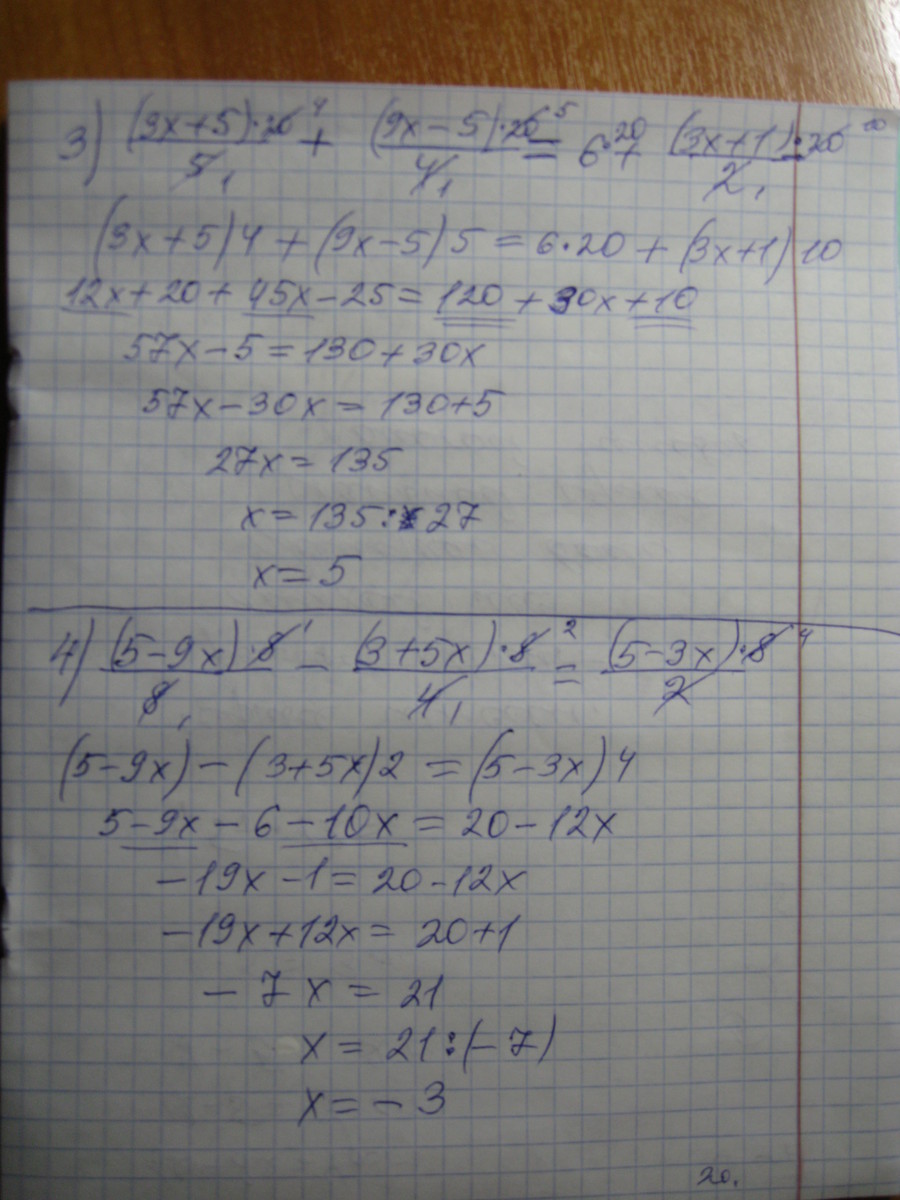 3) (3x+5)·20⁴/5₁ + (9x-5)·20⁵/4₁ = 6·²⁰+ (3x+1)·20¹⁰/2₁
(3x+5)4+(9x-5)5=6·20+(3x+1)10
12x+20+45x-25=120+30x+10
57x-5=130+30x
57x-30x=130+5
27x=135
x=135:27
x=5
4) (5-9x)·8¹/8₁ - (3+5x)·8²/4₁ = (5-3x)·8⁴/2
(5-9x)-(3+5x)2=(5-3x)4
5-9x-6-10x=20-12x
-19x-1=20-12x
-19x+12x=20+1
-7x=21
x=21:(-7)
x=-3
20.